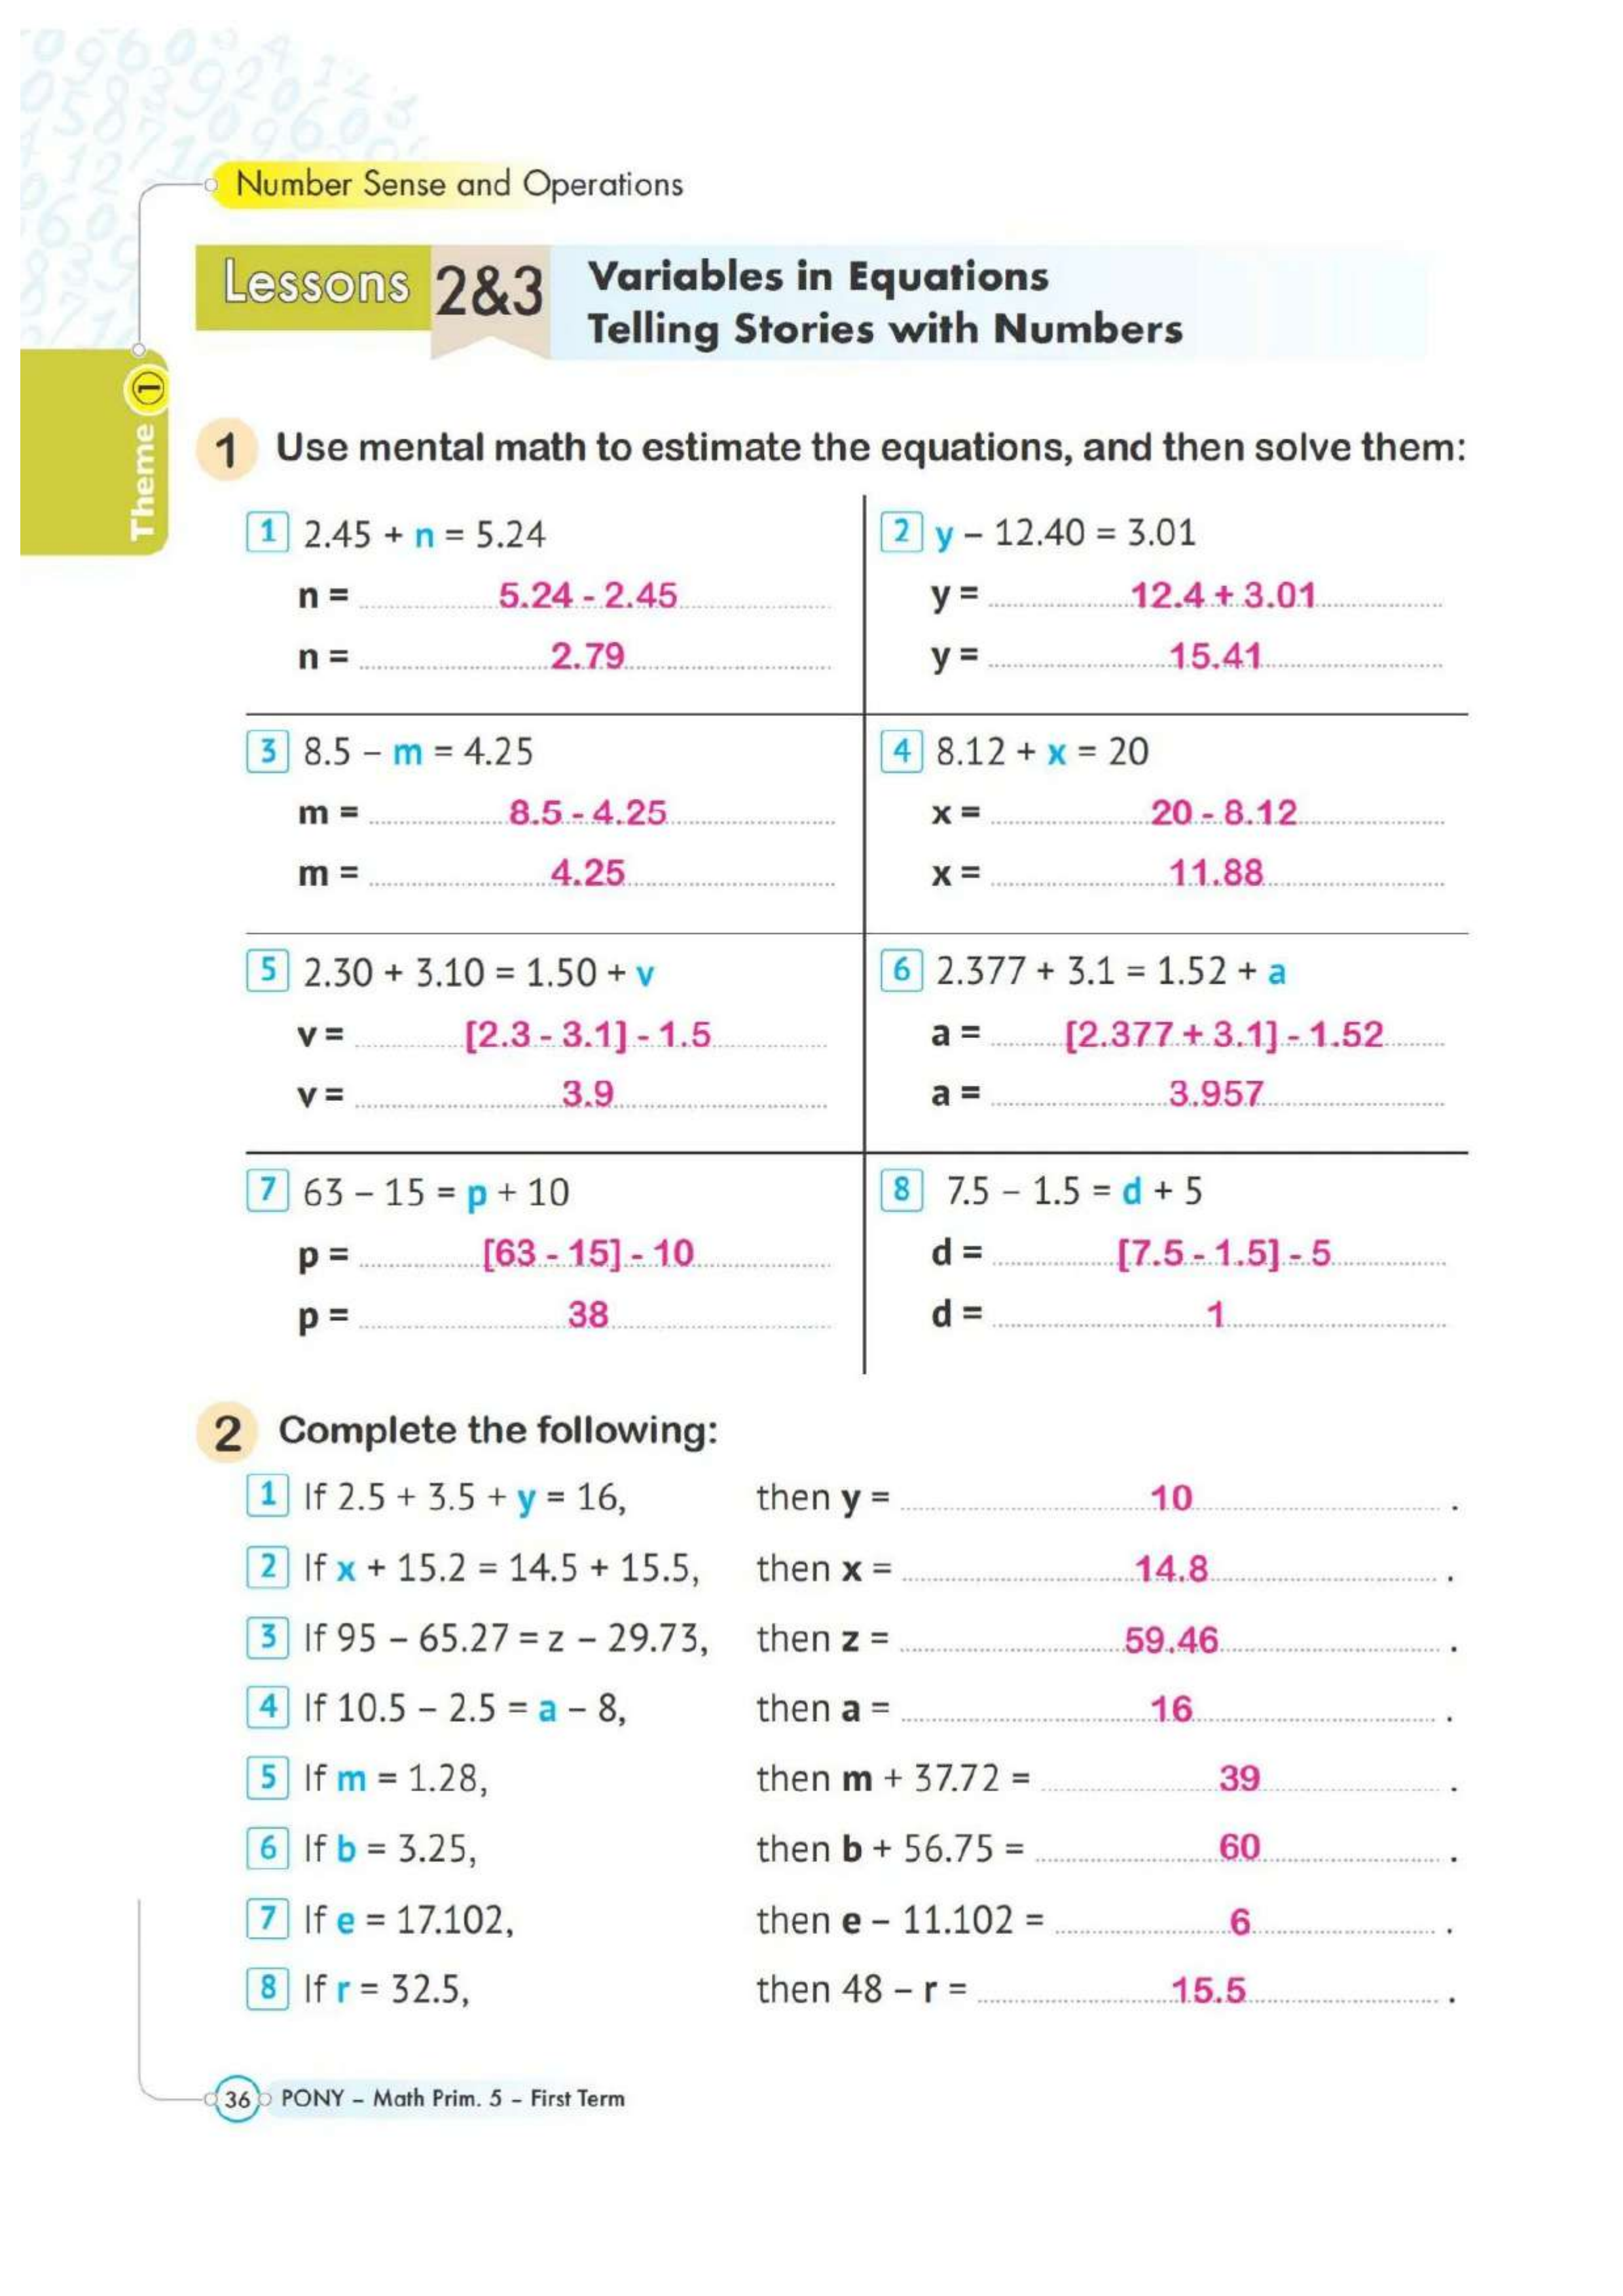 Number Sense and Operations
Lessons 2&3
Variables in Equations
Telling Stories with Numbers
Theme 1
1 Use mental math to estimate the equations, and then solve them:
1 2.45 + n = 5.24
n = 5.24 - 2.45
n = 2.79
2 y – 12.40 = 3.01
y = 12.4 + 3.01
y = 15.41
3 8.5 – m = 4.25
m = 8.5 - 4.25
m = 4.25
4 8.12 + x = 20
x = 20 - 8.12
x = 11.88
5 2.30 + 3.10 = 1.50 + v
v = [2.3 - 3.1] - 1.5
v = 3.9
6 2.377 + 3.1 = 1.52 + a
a = [2.377 + 3.1] - 1.52
a = 3.957
7 63 – 15 = p + 10
p = [63 - 15] - 10
p = 38
8 7.5 – 1.5 = d + 5
d = [7.5 - 1.5] - 5
d = 1
2 Complete the following:
1 If 2.5 + 3.5 + y = 16, then y = 10 .
2 If x + 15.2 = 14.5 + 15.5, then x = 14.8 .
3 If 95 – 65.27 = z – 29.73, then z = 59.46 .
4 If 10.5 – 2.5 = a – 8, then a = 16 .
5 If m = 1.28, then m + 37.72 = 39 .
6 If b = 3.25, then b + 56.75 = 60 .
7 If e = 17.102, then e – 11.102 = 6 .
8 If r = 32.5, then 48 – r = 15.5 .
36 PONY – Math Prim. 5 – First Term